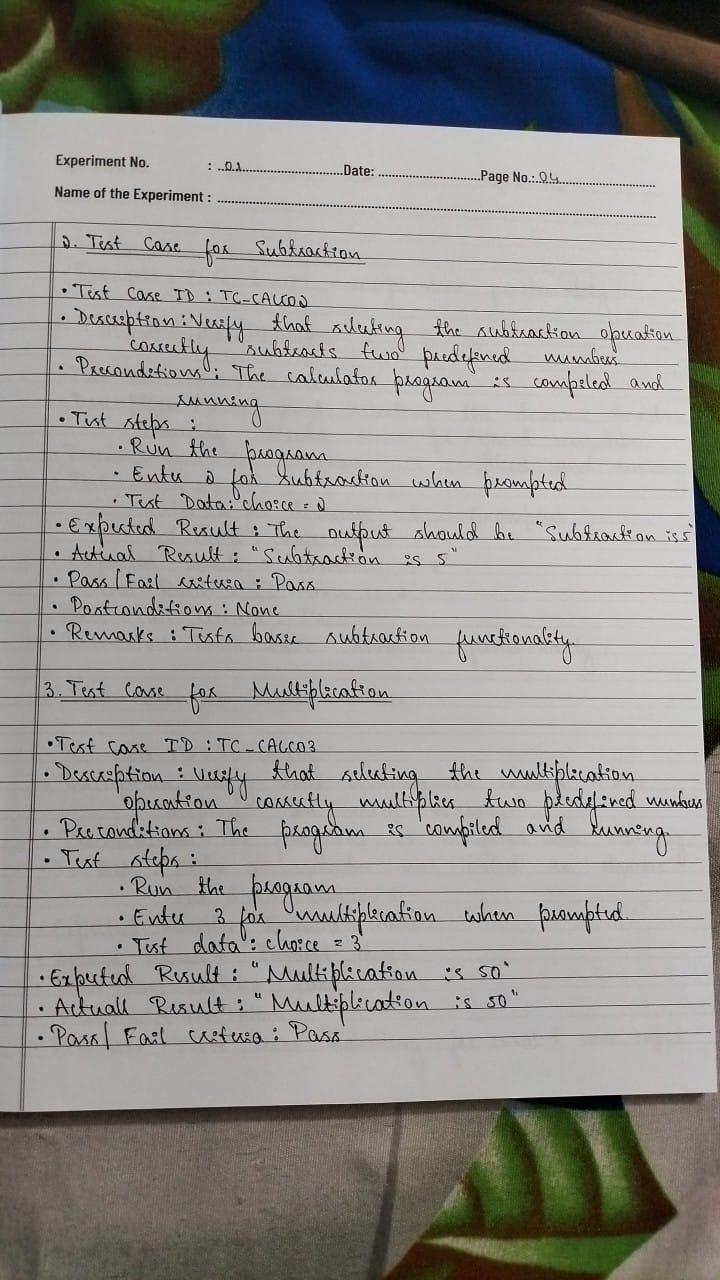 Experiment No. : 01 Date: Page No.: 04
Name of the Experiment :
2. Test Case for Subtraction
• Test Case ID : TC-CALC02
• Description : Verify that selecting the subtraction operation
correctly subtracts two predefined numbers
• Preconditions : The calculator program is compiled and
running
• Test steps :
• Run the program
• Enter 2 for subtraction when prompted
• Test Data : choice = 2
• Expected Result : The output should be "Subtraction is 5"
• Actual Result : "Subtraction is 5"
• Pass/Fail criteria : Pass
• Postconditions : None
• Remarks : Tests basic subtraction functionality.
3. Test Case for Multiplication
• Test Case ID : TC-CALC03
• Description : Verify that selecting the multiplication
operation correctly multiplies two predefined numbers
• Preconditions : The program is compiled and running.
• Test steps :
• Run the program
• Enter 3 for multiplication when prompted.
• Test data : choice = 3
• Expected Result : "Multiplication is 50"
• Actuall Result : "Multiplication is 50"
• Pass/Fail criteria : Pass